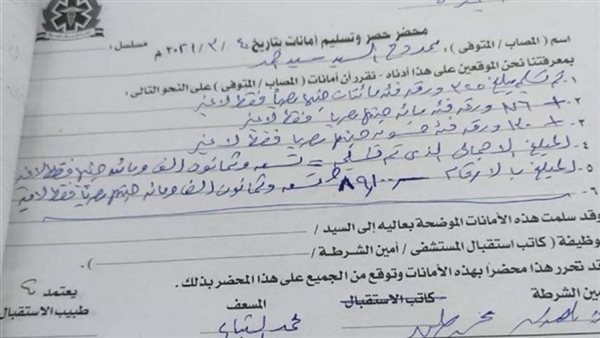 محضر حصر وتسليم أمانات بتاريخ ٤ / ٣ / ٢٠٢١ م
اسم ( المصاب / المتوفى ) : ممدوح السيد سيد مسلسل :
بمعرفتنا نحن الموقعين على هذا أدناه - نقرر أن أمانات ( المصاب / المتوفى ) على النحو التالى :
١- تم تسليم مبلغ ٣٤٥ ورقه فئه مائتان جنيها مصريا فقط لا غير
٢- ورقه فئه مائه جنيها مصريا فقط لا غير
٣- ورقه فئه خمسون جنيها مصريا فقط لا غير
٤- المبلغ الاجمالى الذى تم تسعه وثمانون الف ومائه جنيها فقط لاغير
٥- المبلغ بالارقام ٨٩١٠٠ تسعه وثمانون الف ومائه جنيها مصريا فقط لاغير
٦-
وقد سلمت هذه الأمانات الموضحة بعاليه إلى السيد /
وظيفة ( كاتب استقبال المستشفى / أمين الشرطة / )
قد تحرر هذا محضراً بهذه الأمانات وتوقع من الجميع على هذا المحضر بذلك .
مين الشرطة كاتب الاستقبال المسعف يعتمد
طبيب الاستقبال
محمد